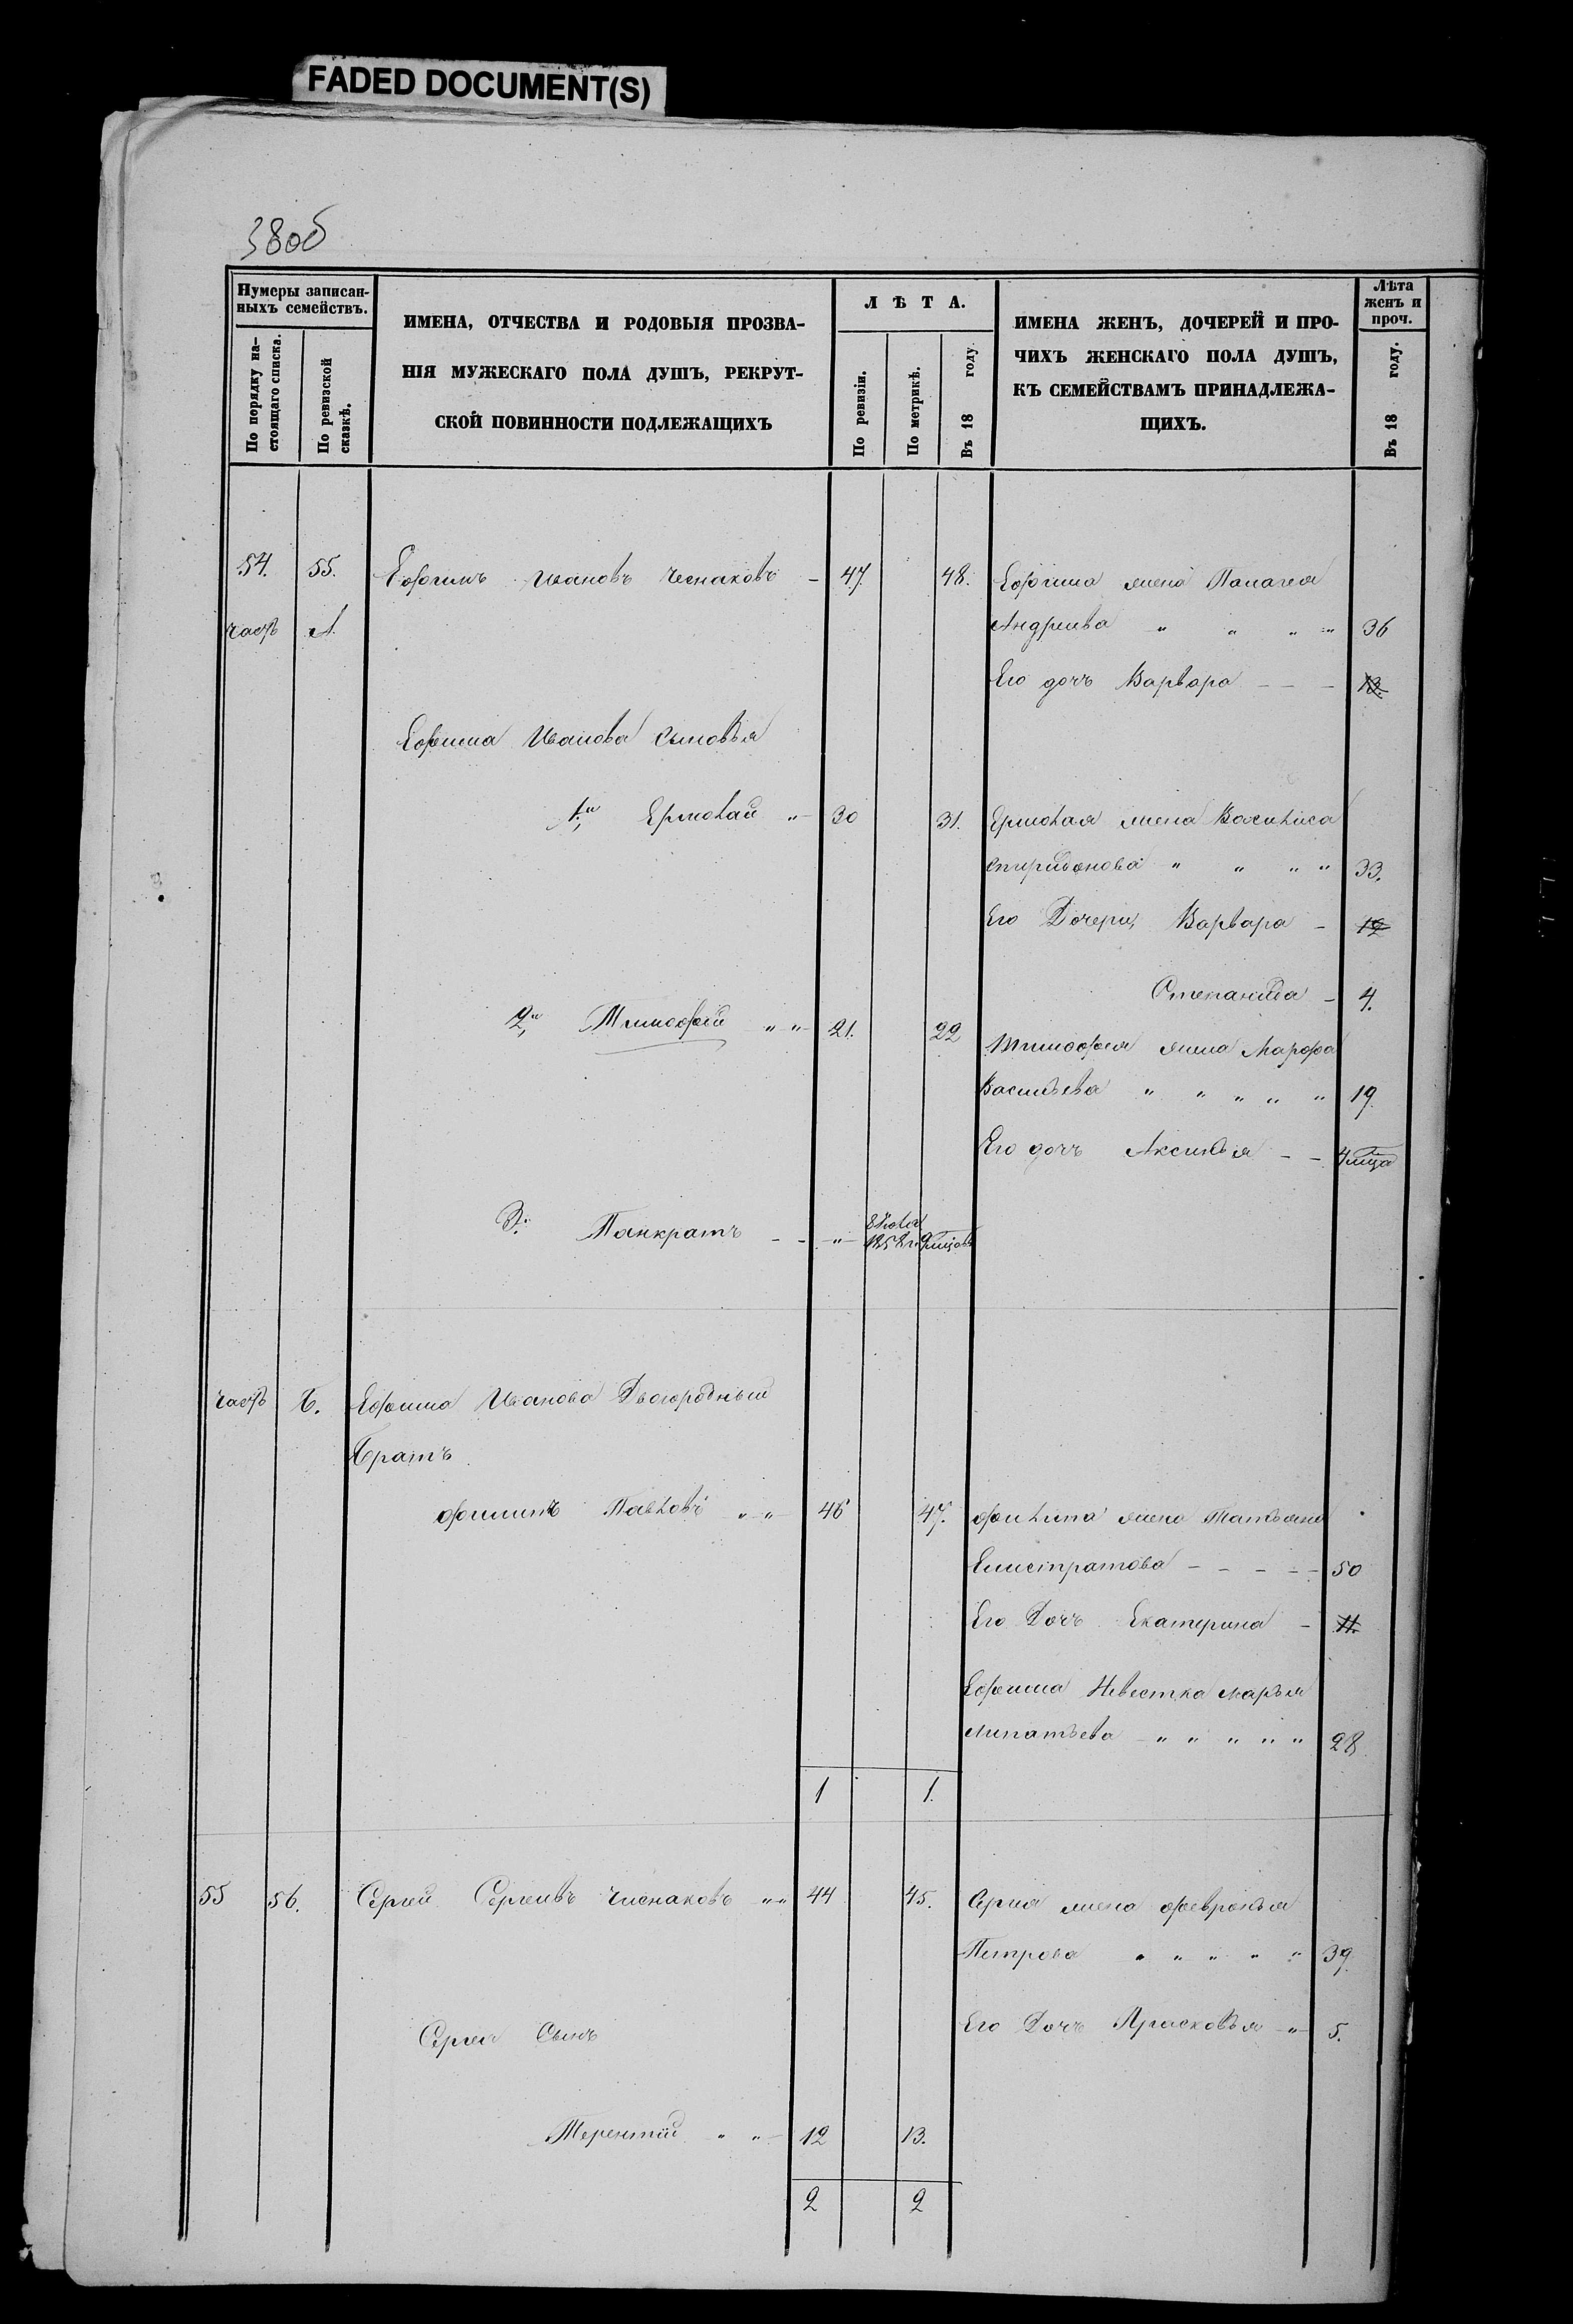 FADED DOCUMENT(S)
38об
Нумеры записан-
ныхъ семействъ.
По порядку на-
стоящаго списка.
По ревизской
сказкѣ.
ИМЕНА, ОТЧЕСТВА И РОДОВЫЯ ПРОЗВА-
НІЯ МУЖЕСКАГО ПОЛА ДУШЪ, РЕКРУТ-
СКОЙ ПОВИННОСТИ ПОДЛЕЖАЩИХЪ
ЛѢТА.
По ревизіи.
По метрикѣ.
Въ 18 году
ИМЕНА ЖЕНЪ, ДОЧЕРЕЙ И ПРО-
ЧИХЪ ЖЕНСКАГО ПОЛА ДУШЪ,
КЪ СЕМЕЙСТВАМЪ ПРИНАДЛЕЖА-
ЩИХЪ.
Лѣта
женъ и
проч.
Въ 18 году.
54. 55. Ефимъ Ивановъ Чеснаковъ - 47. 48. Ефима жена Палагея
часть А. Андреева " " " " 36
Его дочь Варвара - - - 13.
Ефима Иванова сыновья
1й Ермолай " 30 31. Ермолая жена Василиса
Спиридонова " " " " 33.
Его Дочери, Варвара - 12
Степанида - 4.
2й Тимофей " " 21. 22 Тимофея жена Марфа
Васильева " " " " " 19.
Его дочь Аксинья - - 4 м-ца
3. Панкратъ - - " 8 Іюля
185
часть Б. Ефима Иванова Двоюродный
Братъ
Филипъ Павловъ " " 46 47. Филипа жена Татьяна
Елистратова - - - - - 50
Его Дочь Екатерина - 11.
Ефима Невестка Марья
Липатьева " " " " " 28
1 1.
55 56. Сергей Сергеевъ Чиснаковъ " " 44 45. Сергея жена Февронья
Петрова " " " " " 39.
Сергея Сынъ Его Дочь Прасковья " 5.
Терентий " " 12 13.
2 2